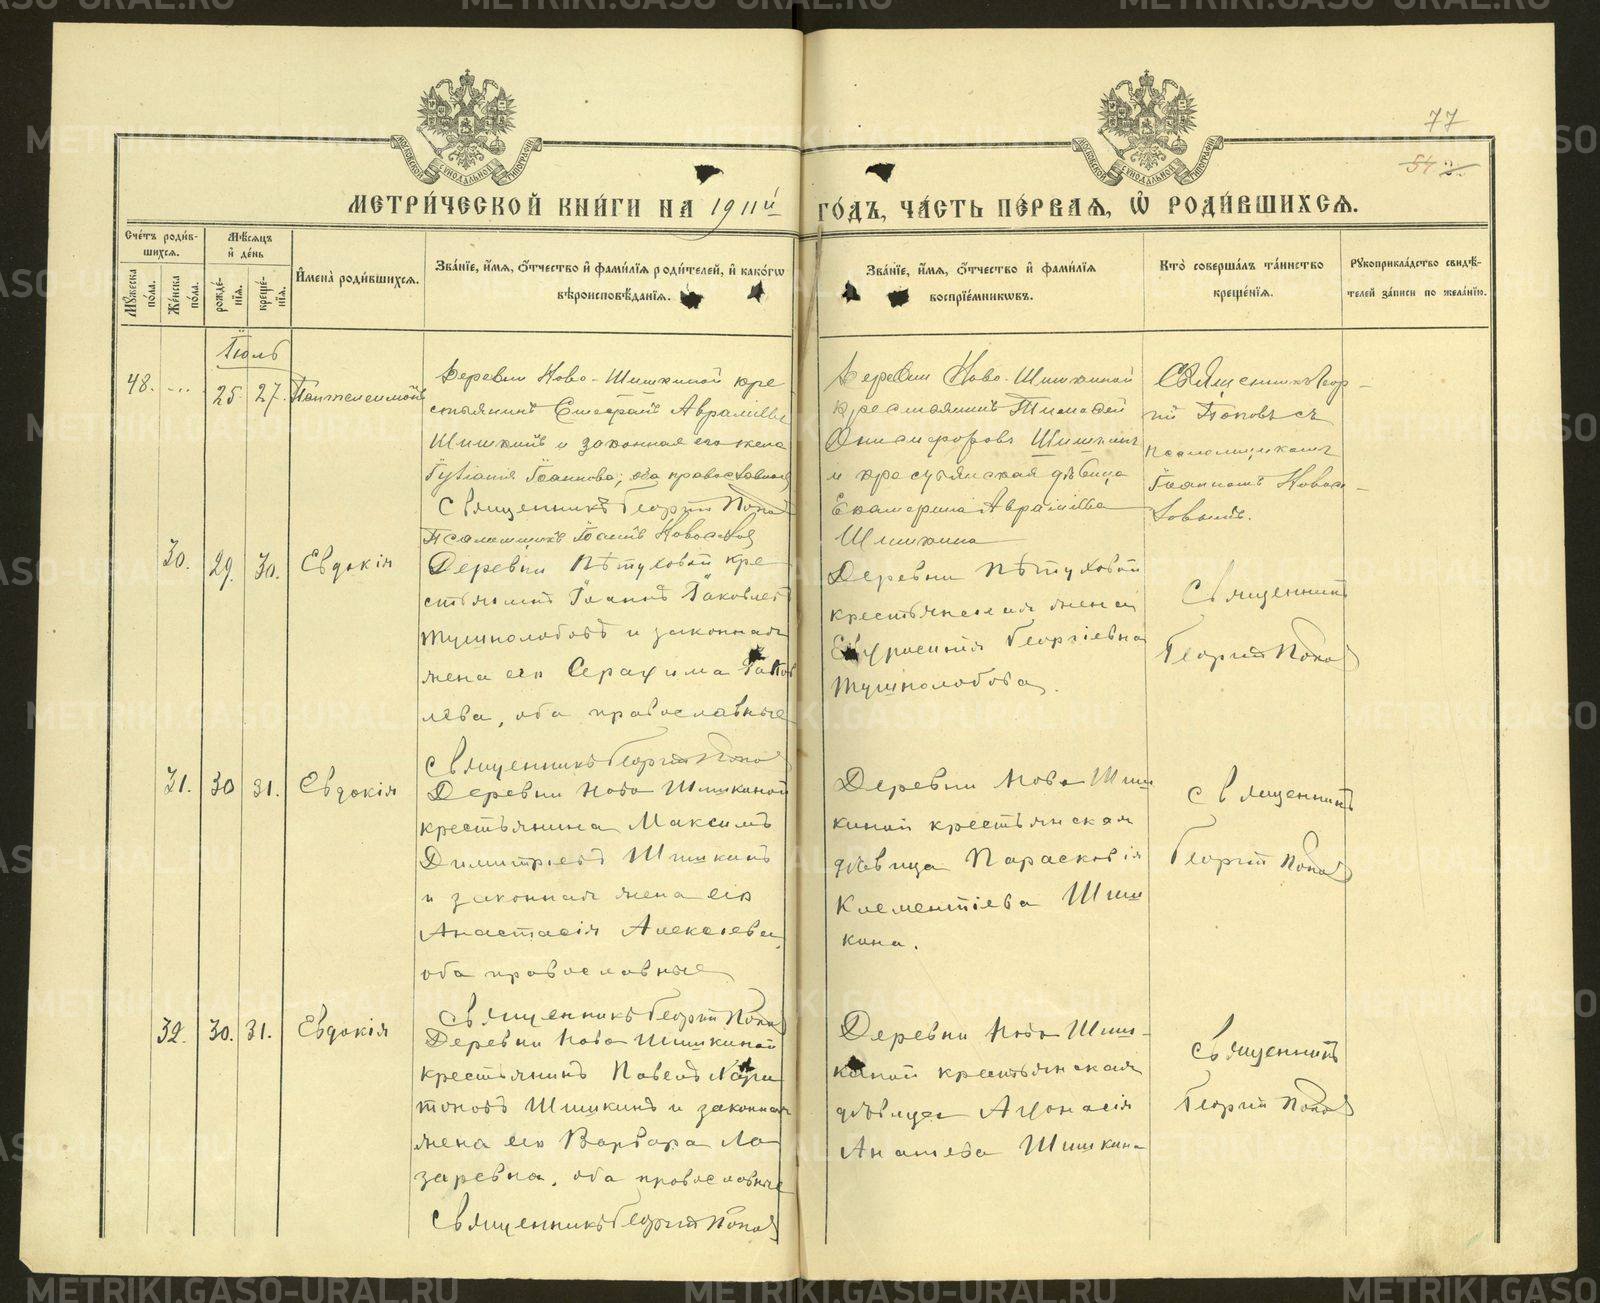 77
54
МЕТРИ́ЧЕСКОЙ КНИ́ГИ НА 1911й ГО́ДЪ, ЧА́СТЬ ПЕ́РВАЯ, Ѡ҆ РОДИ́ВШИХСЯ.
Сче́тъ роди́в-
шихся.
Мꙋ́жеска по́ла.
Же́нска по́ла.
Мѣ́сяцъ
и҆ де́нь
рожде́-
нїя.
креще́-
нїя.
И҆мена̀ роди́вшихся.
Зва́нїе, и҆́мя, ѻ҆́тчество и҆ фами́лїя роди́телей, и҆ како́гѡ
вѣроисповѣ́данїя.
Зва́нїе, и҆́мя, ѻ҆́тчество и҆ фами́лїя
воспрїе́мникѡвъ.
Кто̀ соверша́лъ та́инство
креще́нїя.
Рꙋкоприкла́дство свидѣ́-
телей за́писи по жела́нїю.
Іюль
48. 25. 27. Пантелеимонъ
Деревни Ново-Шишкиной кре
стьянинъ Стефанъ Аврамiевъ
Шишкинъ и законная его жена
Іуліанія Іоаннова, оба православные
Священникъ Георгій Попов
Псаломщикъ Іоаннъ
Деревни Ново-Шишкиной
крестьянинъ Тимофей
Онисифоровъ Шишкинъ
и крестьянская дѣвица
Екатерина Аврамiева
Шишкина
Священникъ Геор-
гій Поповъ съ
псаломщикомъ
Іоанномъ
30. 29. 30. Евдокія
Деревни Пѣтуховой кре
стьянинъ Іоаннъ Іаковлевъ
Тушнолобовъ и законная
жена его Серафима Іаков
лева, оба православные
Священникъ Георгій Попов
Деревни Пѣтуховой
крестьянская жена
Евфросинія Георгіевна
Тушнолобова.
Священникъ
Георгій Попов
31. 30 31. Евдокія
Деревни Ново Шишкиной
крестьянина Максимъ
Димитріевъ Шишкинъ
и законная жена его
Анастасія Алексіева,
оба православные
Священникъ Георгій Попов
Деревни Ново Шиш
киной крестьянская
дѣвица Параскевія
Клементіева Шиш
кина.
Священникъ
Георгій Попов
32. 30. 31. Евдокія
Деревни Ново Шишкиной
крестьянинъ Павелъ Хари
тоновъ Шишкинъ и законная
жена его Варвара Ла
заревна, оба православные
Священникъ Георгій Попов
Деревни Ново Шиш-
киной крестьянская
дѣвица Афонасія
Шишкина
Священникъ
Георгій Попов
METRIKI.GASO-URAL.RU